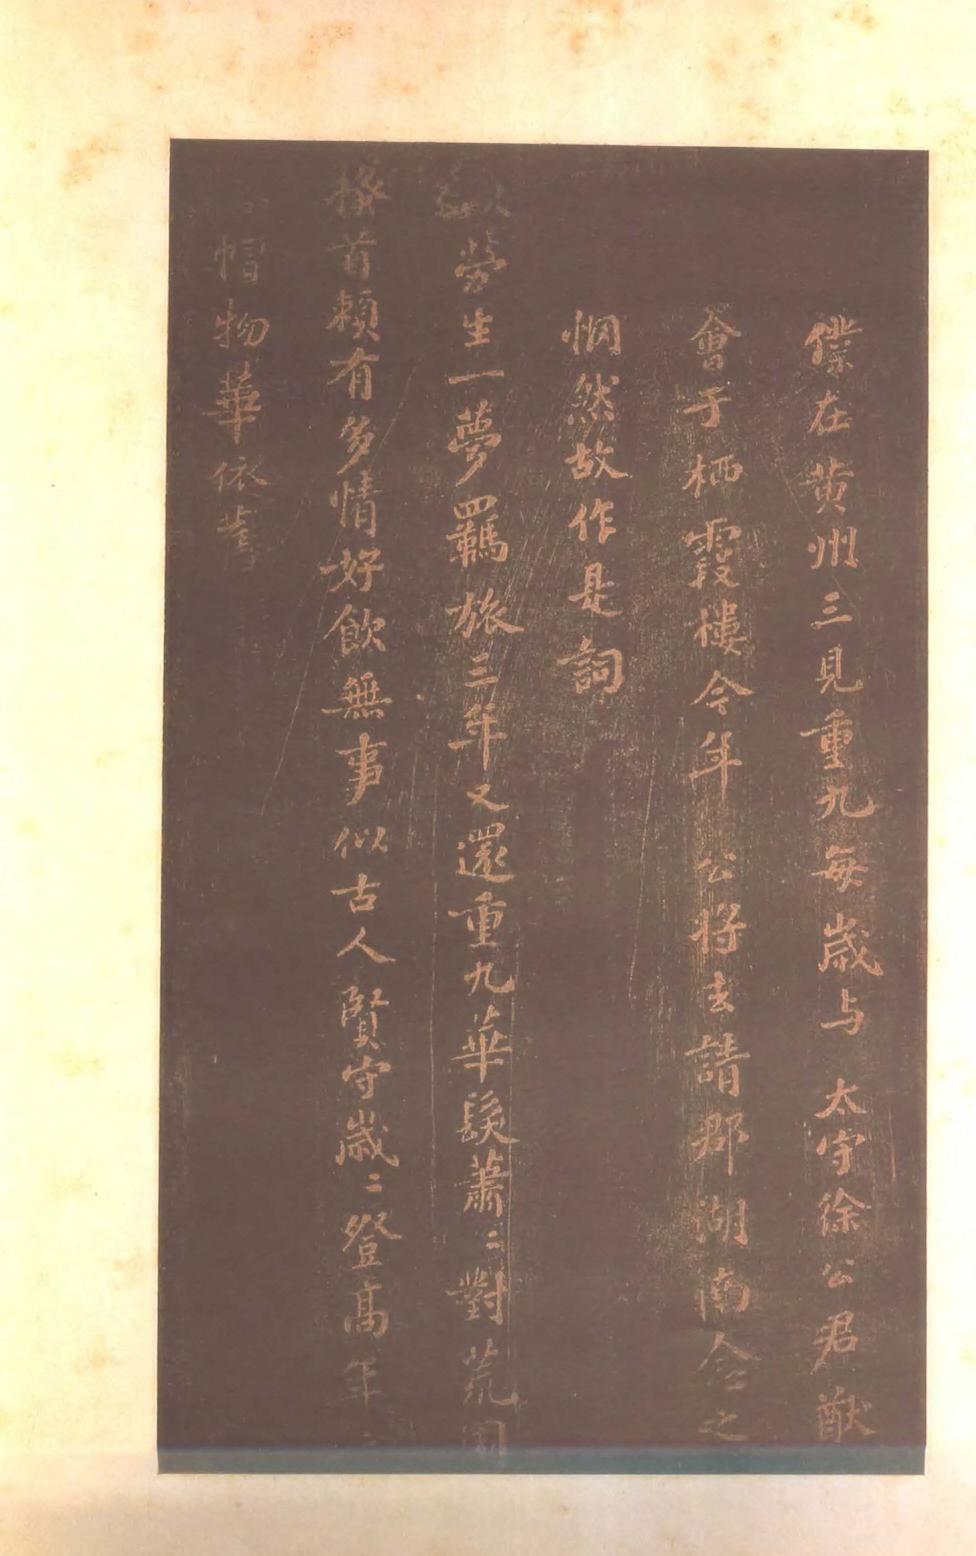 僕在黄州三見重九每歳与太守徐公君猷
會于栖霞樓今年公將去請郡湖南念之
惘然故作是詞
勞生一夢羈旅三年又還重九華髮蕭〻對荒園
搔首賴有多情好飲無事似古人賢守歲〻登高年〻
帽物華依舊